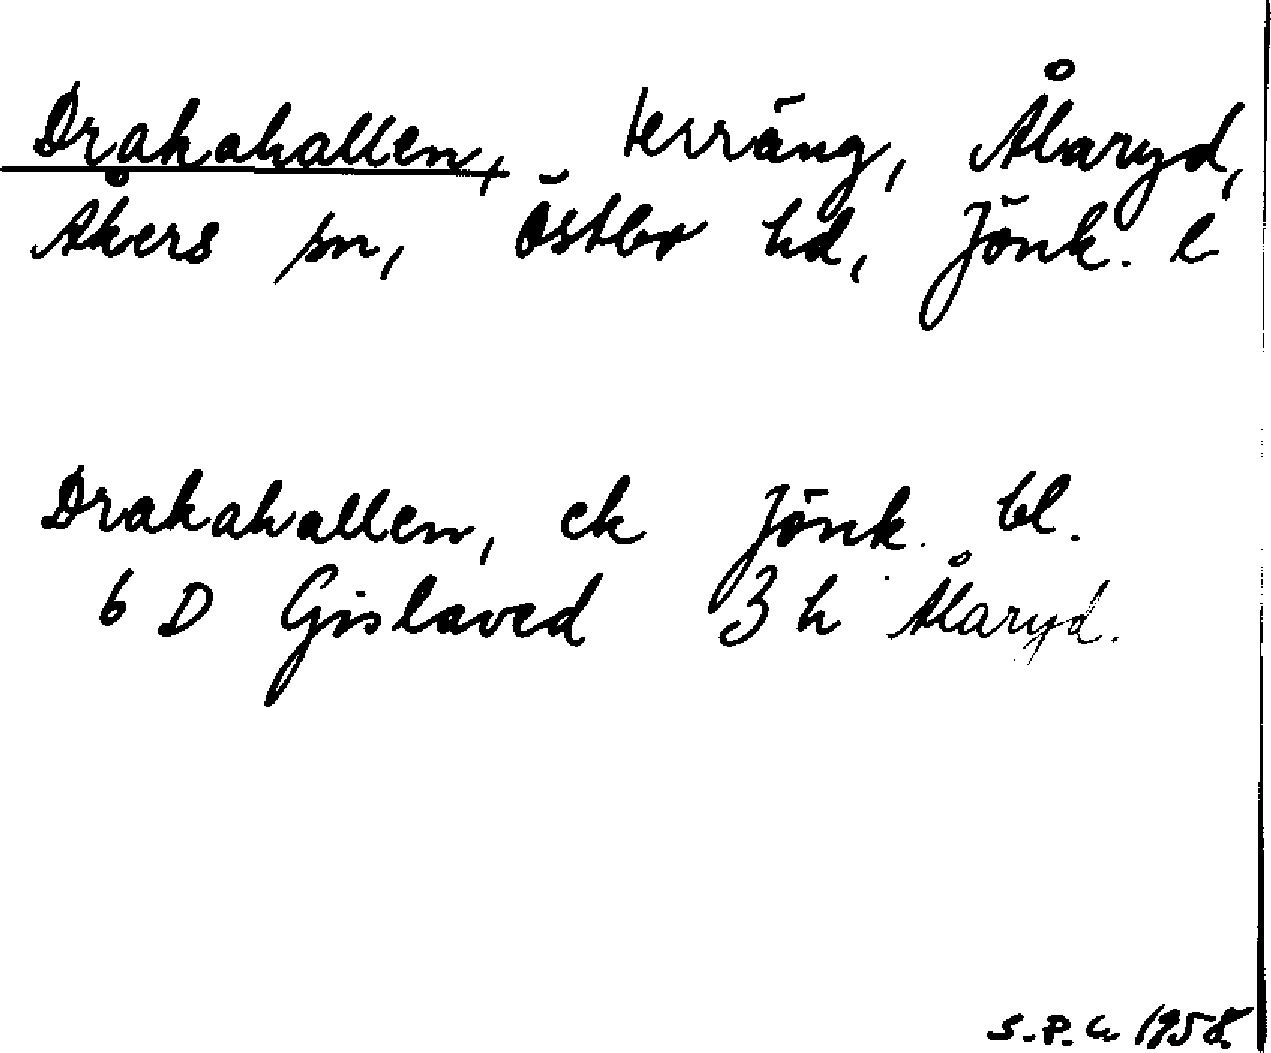 Drakahallen, terräng, Ålaryd,
Åkers sn, Östbo hd, Jönk. l
Drakahallen, ek Jönk. bl.
6 D Gislaved 3 h Ålaryd.
S.P.G. 1958.